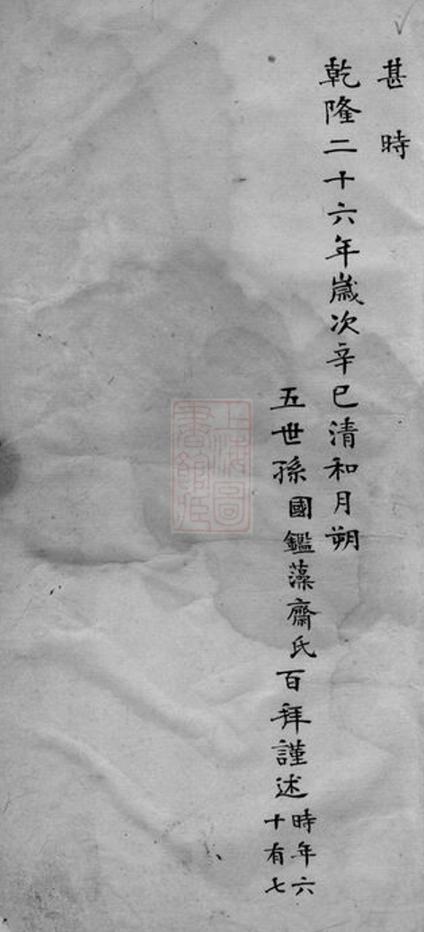 甚時
乾隆二十六年歲次辛巳清和月朔
五世孫國鑑藻齋氏百拜謹述
時年六
十有七
上海圖
書館藏